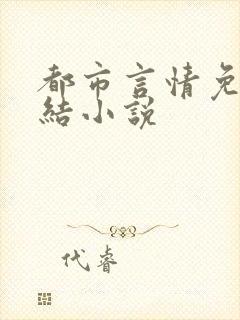 都市言情免
結小說
代睿